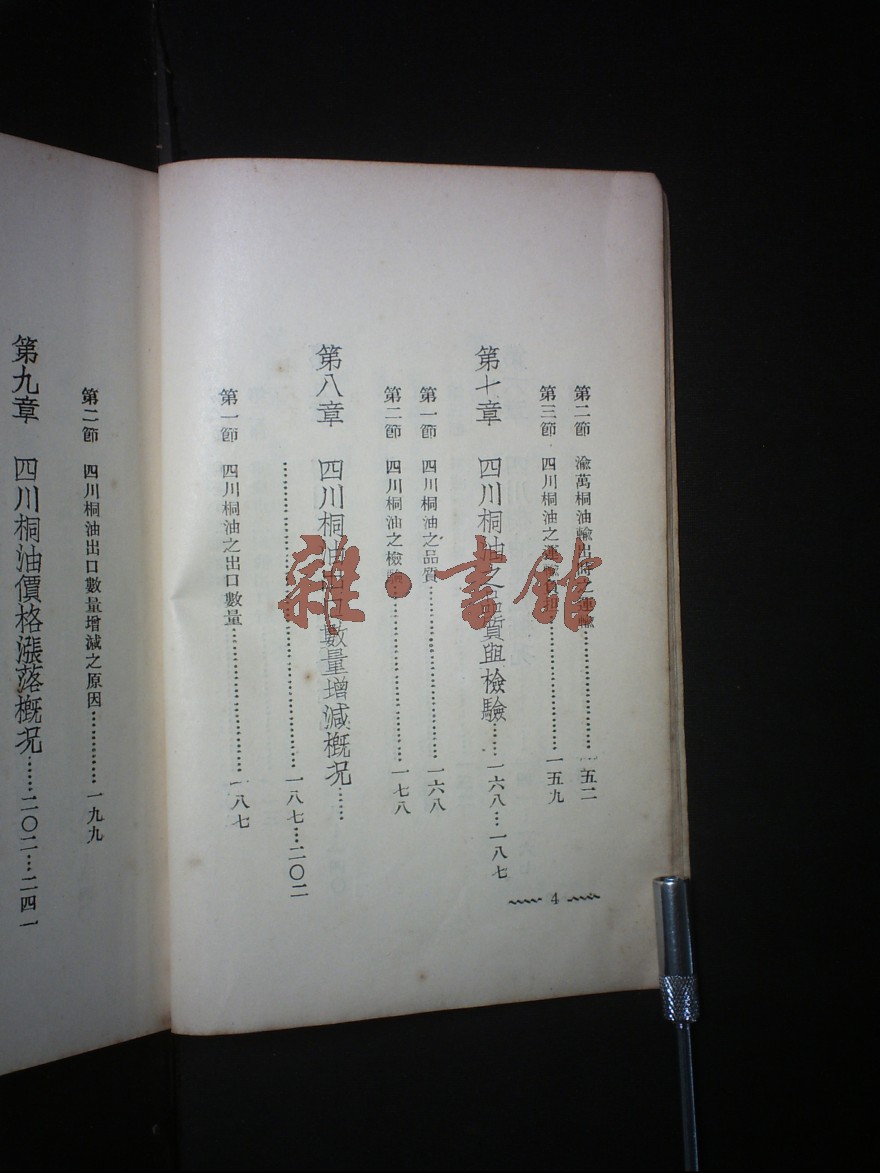 第二節 渝萬桐油輸出時之運輸……………一五二
第三節 四川桐油之運輸費用……………一五九
第十章 四川桐油之品質與檢驗……一六八…一八七
第一節 四川桐油之品質……………一六八
第二節 四川桐油之檢驗……………一七八
第八章 四川桐油出口數量增減概况……
……………一八七…二〇二
第一節 四川桐油之出口數量……………一八七
4
第二節 四川桐油出口數量增減之原因…………一九九
第九章 四川桐油價格漲落概况……二〇二…二四一
雜·書館